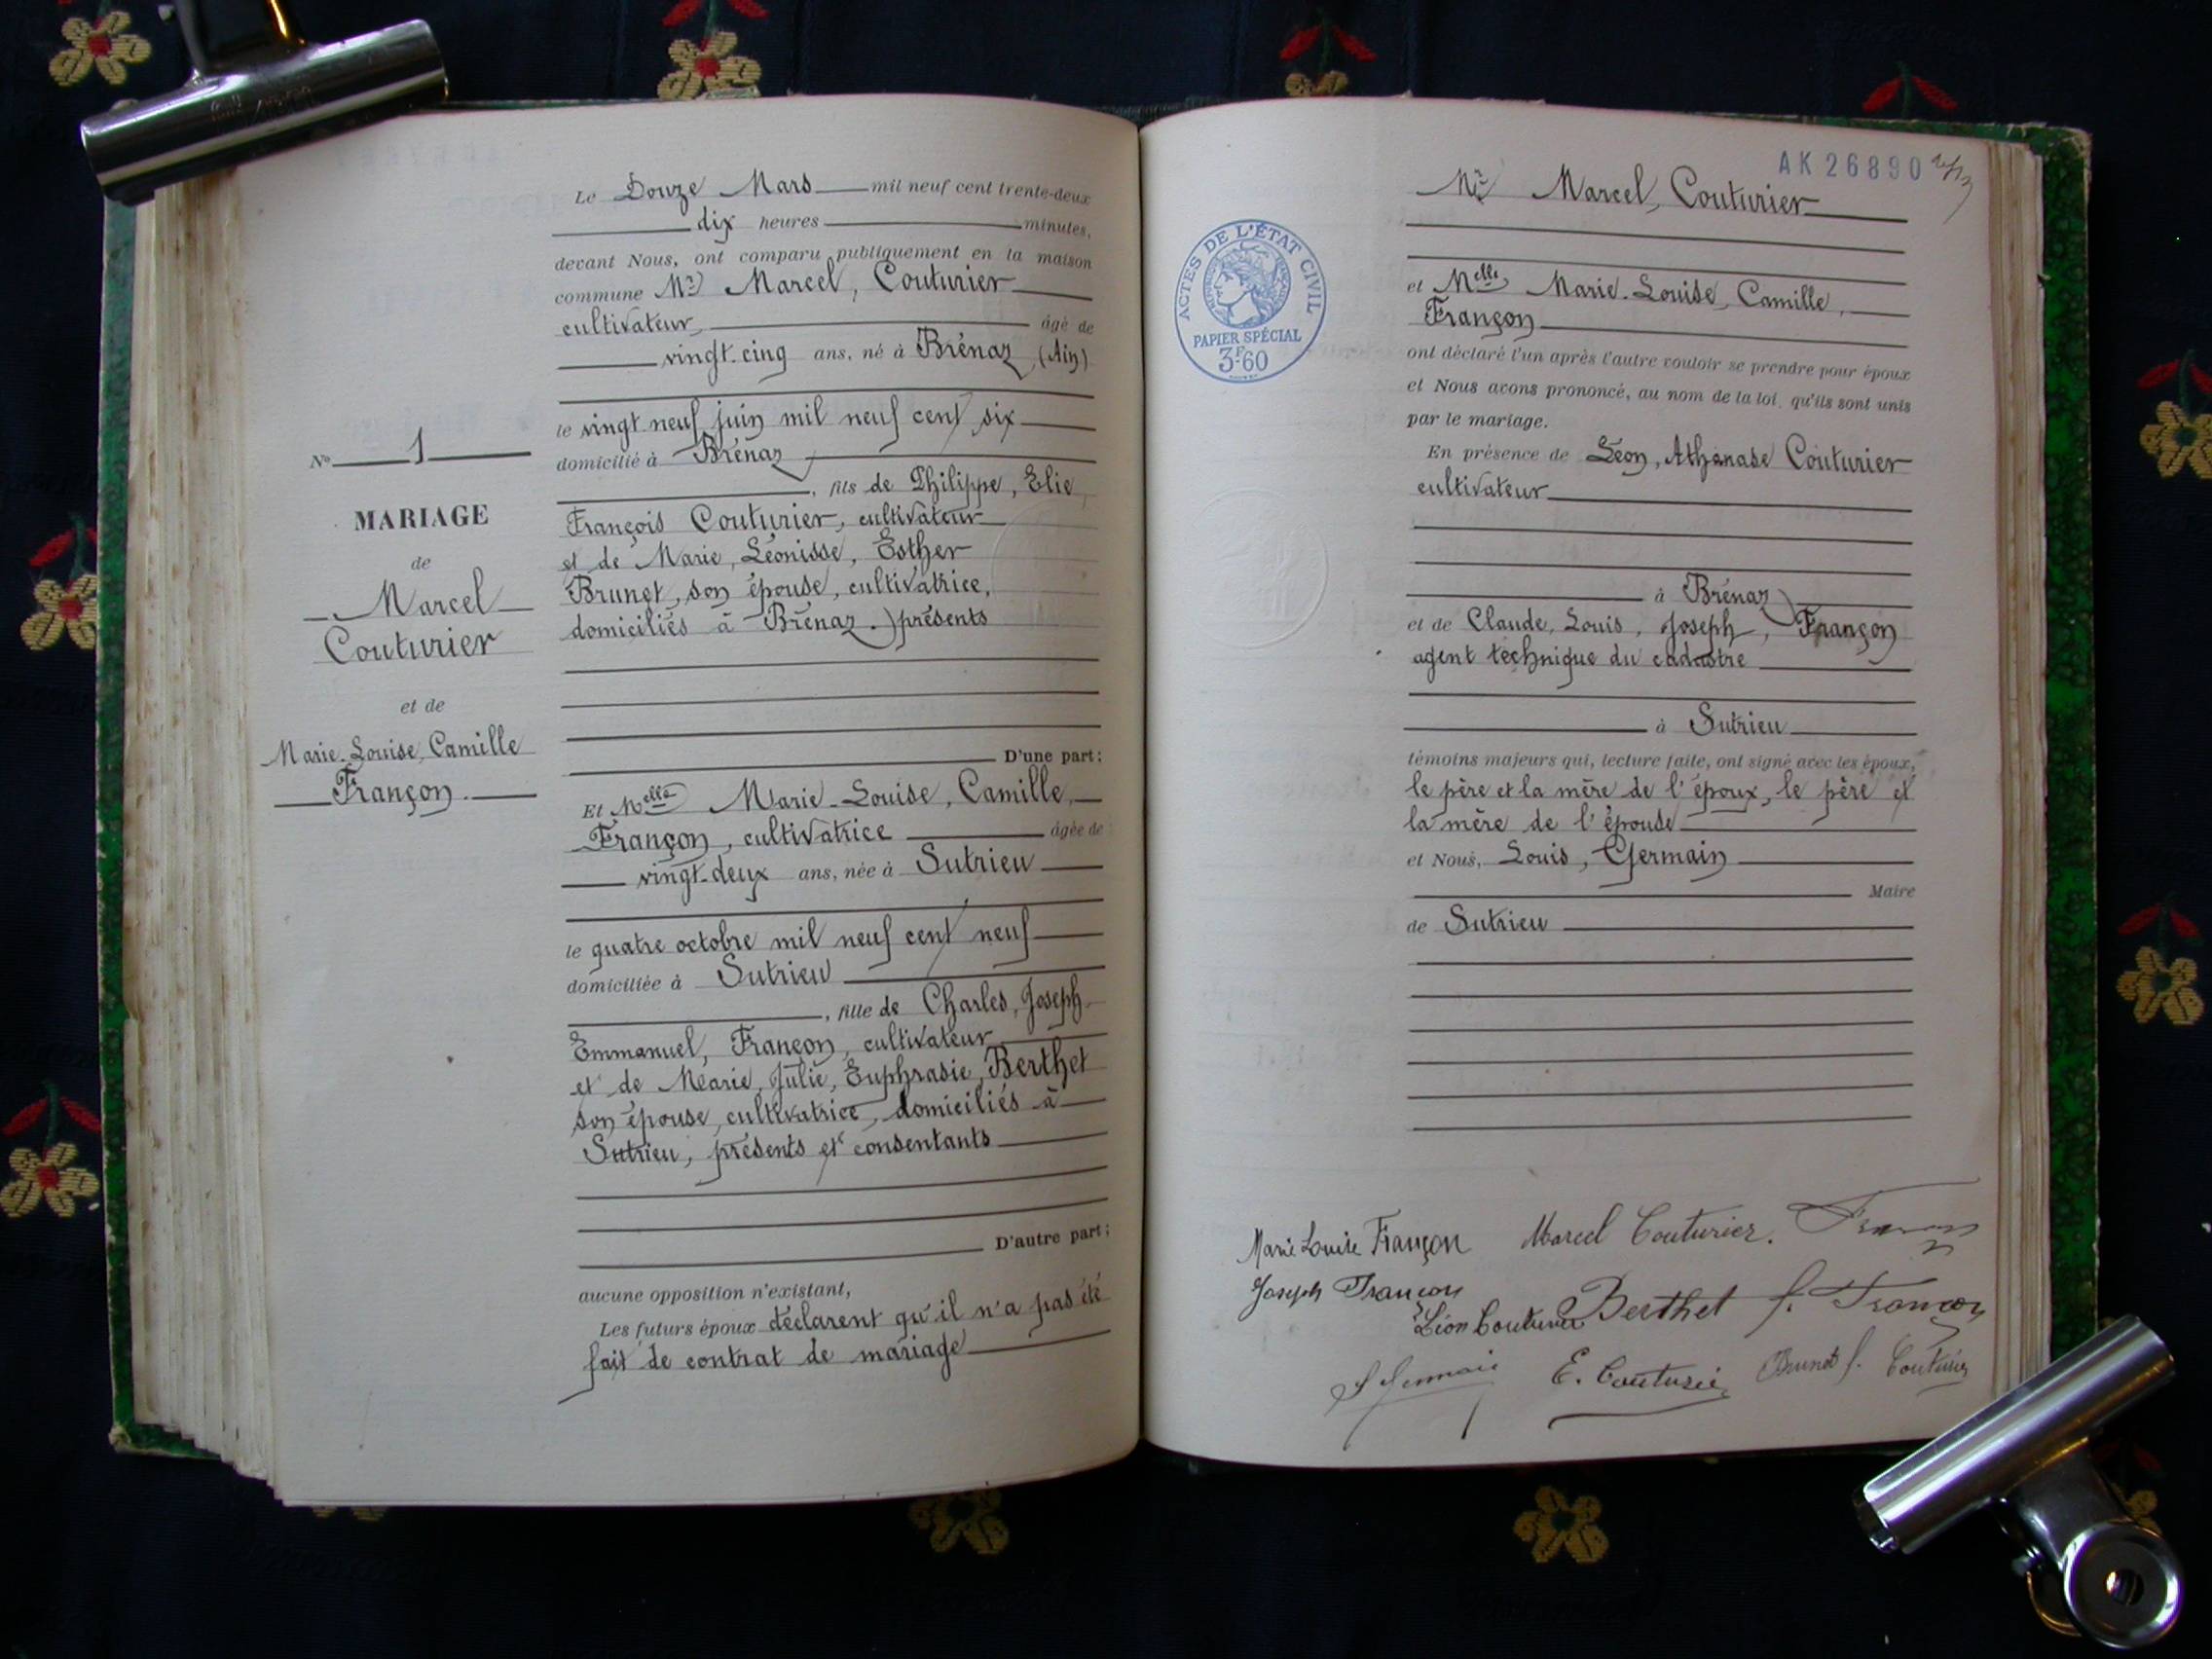 Nº 1
MARIAGE
de
Marcel
Couturier
et de
Marie-Louise, Camille
Françon.
Le Douze Mars mil neuf cent trente-deux
dix heures minutes,
devant Nous, ont comparu publiquement en la maison
commune Mr Marcel, Couturier
cultivateur, âgé de
vingt-cinq ans, né à Brénaz, (Ain)
le vingt neuf juin mil neuf cent six
domicilié à Brénaz
, fils de Philippe, Elie,
François Couturier, cultivateur
et de Marie, Léonisse, Esther
Brunet, son épouse, cultivatrice,
domiciliés à Brénaz. présents
D'une part;
Et Melle Marie-Louise, Camille,
Françon, cultivatrice âgée de
vingt-deux ans, née à Sutrieu
le quatre octobre mil neuf cent neuf
domiciliée à Sutrieu
, fille de Charles, Joseph
Emmanuel, Françon, cultivateur
et de Marie, Julie, Euphrasie, Berthet
son épouse, cultivatrice, domiciliés à
Sutrieu, présents et consentants
D'autre part;
aucune opposition n'existant,
Les futurs époux déclarent qu'il n'a pas été
fait de contrat de mariage
AK 26890
ACTES DE L'ÉTAT CIVIL
RÉPUBLIQUE FRANÇAISE
PAPIER SPÉCIAL
3F60
Mr Marcel, Couturier
et Melle Marie-Louise, Camille,
Françon
ont déclaré l'un après l'autre vouloir se prendre pour époux
et Nous avons prononcé, au nom de la loi, qu'ils sont unis
par le mariage.
En présence de Léon, Athanase Couturier
cultivateur
à Brénaz
et de Claude, Louis, Joseph, Françon
agent technique du cadastre
à Sutrieu
témoins majeurs qui, lecture faite, ont signé avec les époux,
le père et la mère de l'époux, le père et
la mère de l'épouse
et Nous, Louis, Germain
Maire
de Sutrieu
Marie Louise Françon Marcel Couturier.
Joseph Françon
Léon Couturier Berthet f. Françon
E. Couturier Brunet f. Couturier